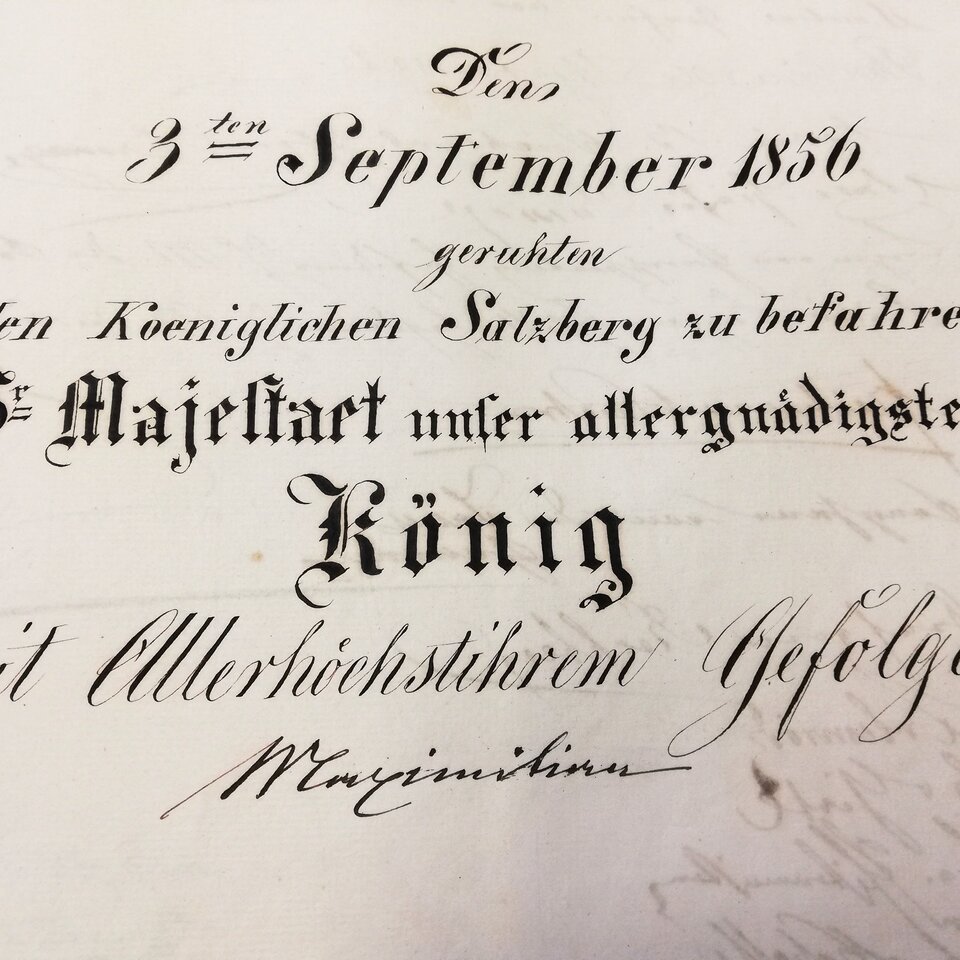 Den
3ten September 1856
geruhten
den Koeniglichen Salzberg zu befahre
Sr Majeſtaet unſer allergnädigste
König
it Allerhöchstihrem Gefolge
Maximilian